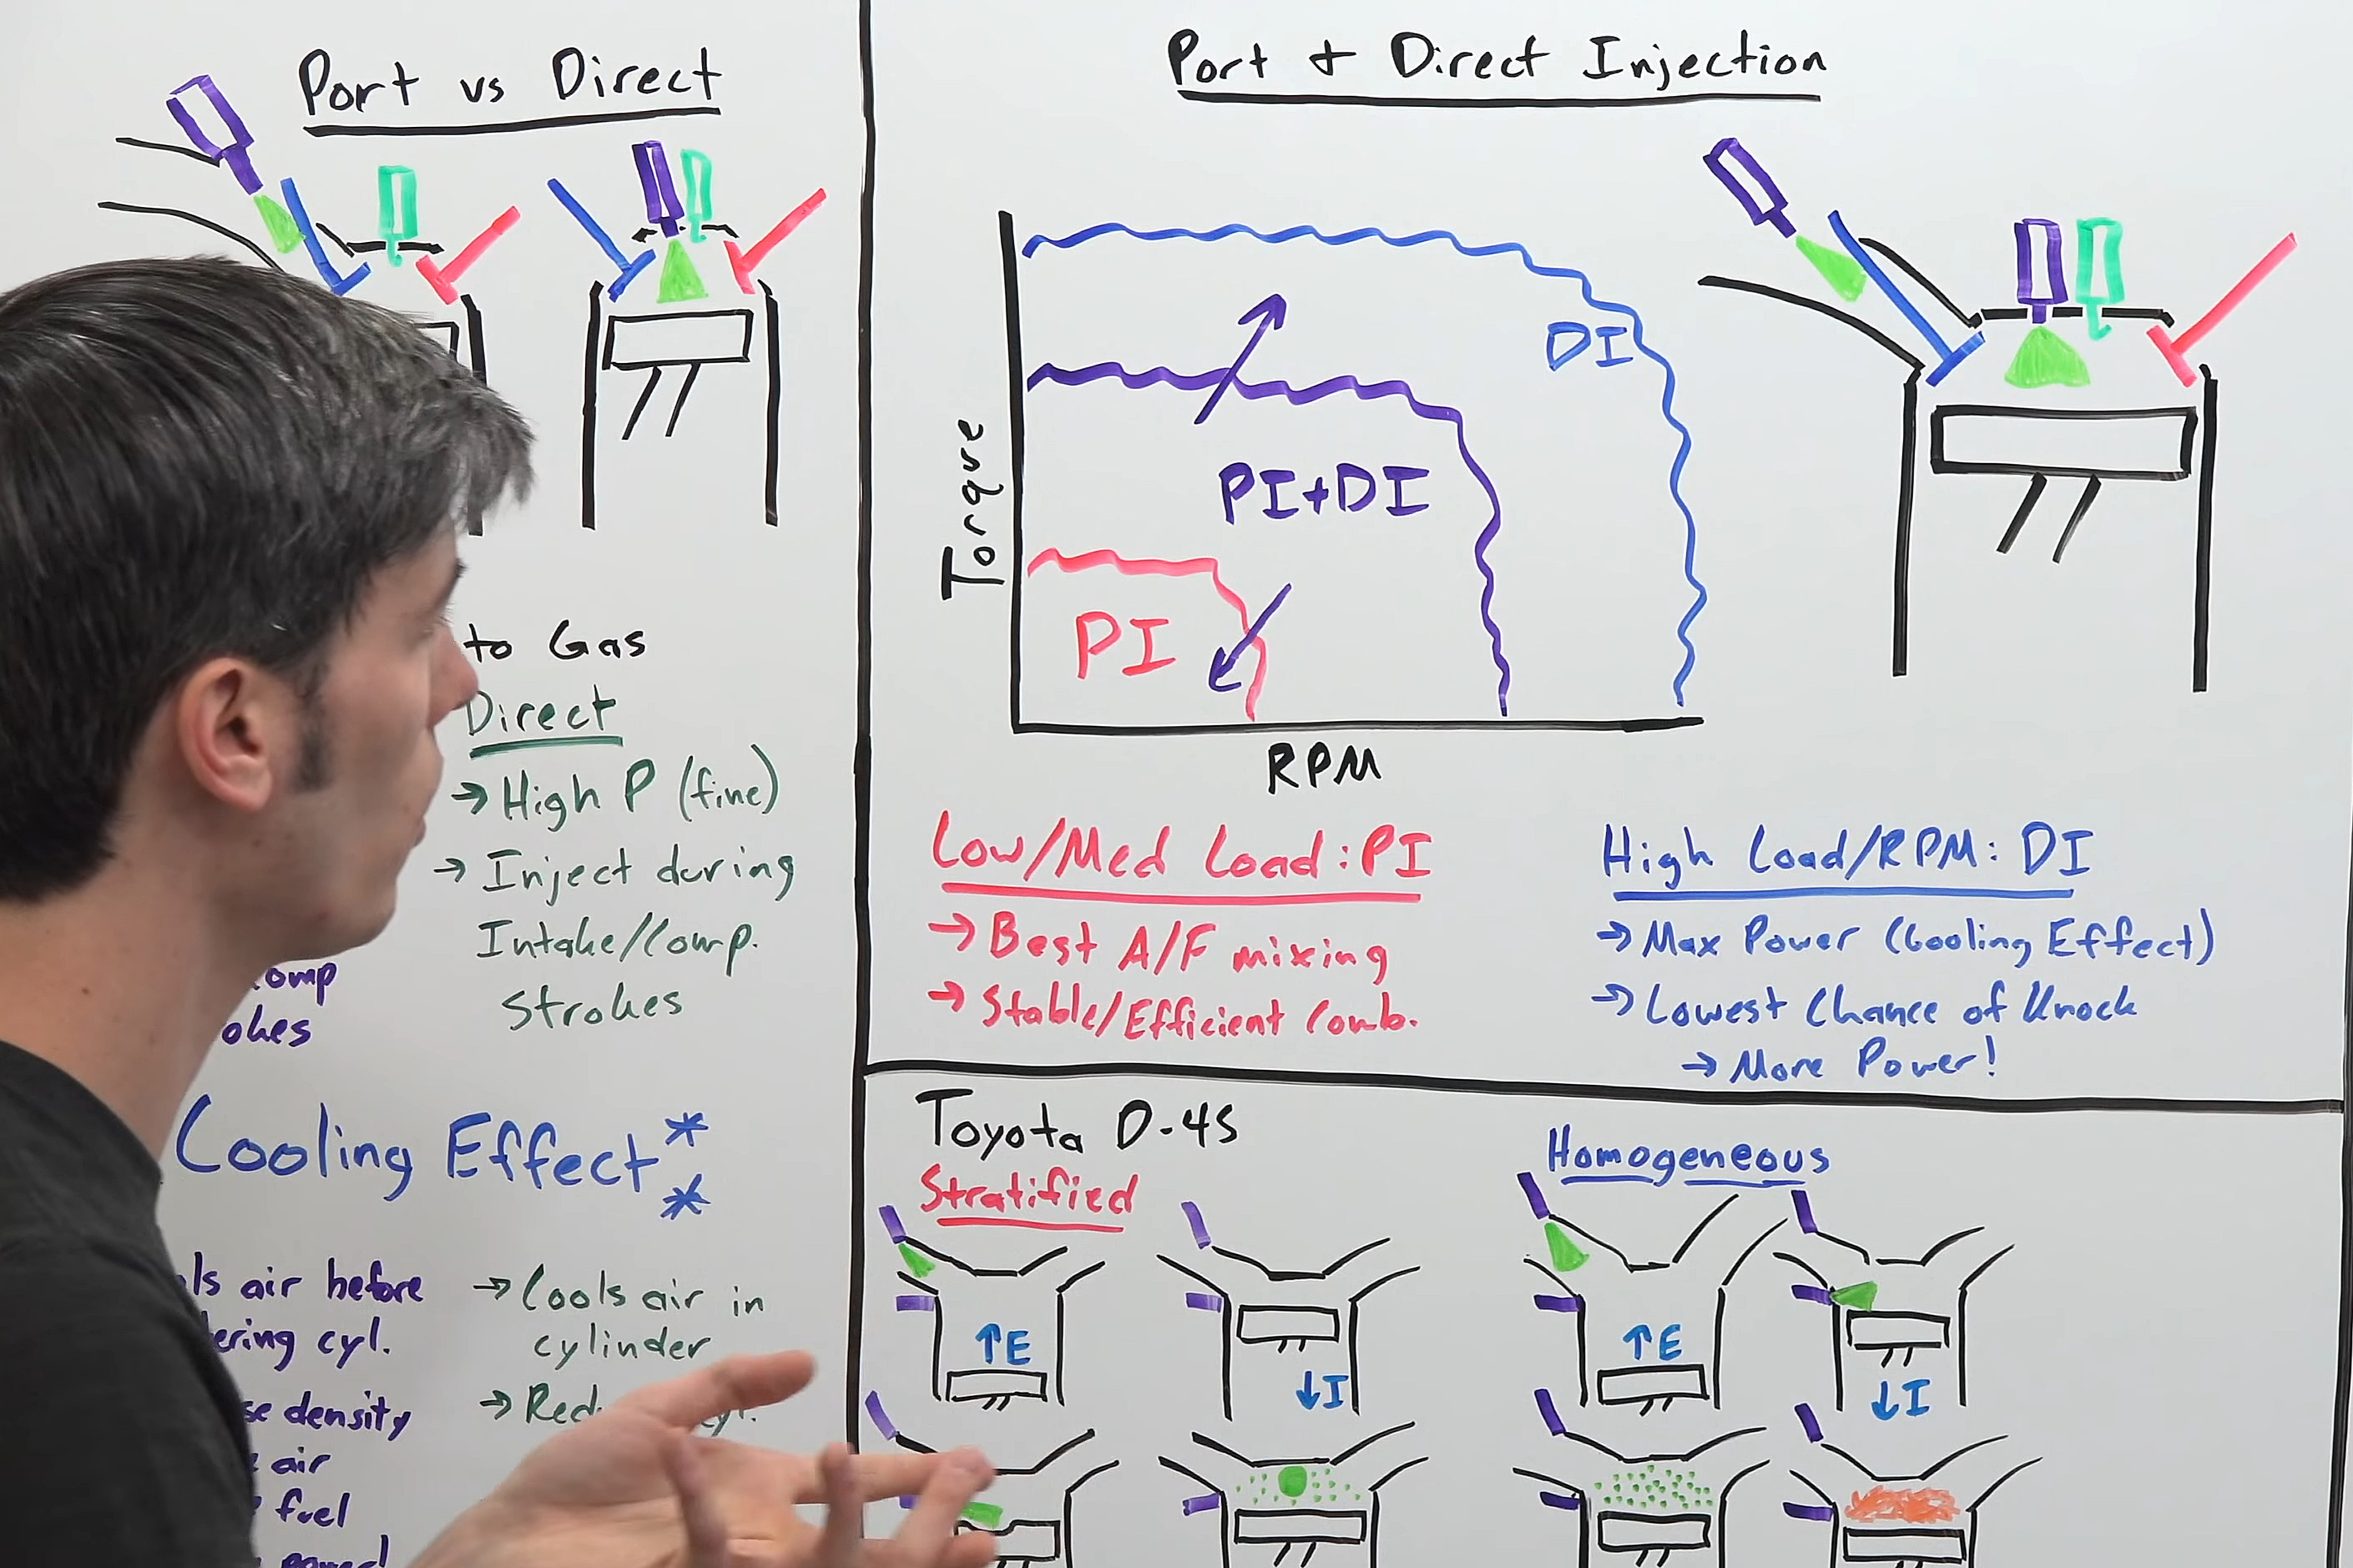 Port vs Direct
to Gas
Direct
→ High P (fine)
→ Inject during
Intake/Comp.
Strokes
Cooling Effect*
*
air before
cyl.
density
air
fuel
→ Cools air in
cylinder
Port & Direct Injection
Torque
DI
PI+DI
PI
RPM
Low/Med Load: PI
→ Best A/F mixing
→ Stable/Efficient Comb.
High Load/RPM: DI
→ Max Power (Cooling Effect)
→ Lowest Chance of Knock
→ More Power!
Toyota D-4S
Stratified
↑E
↓I
Homogeneous
↑E
↓I